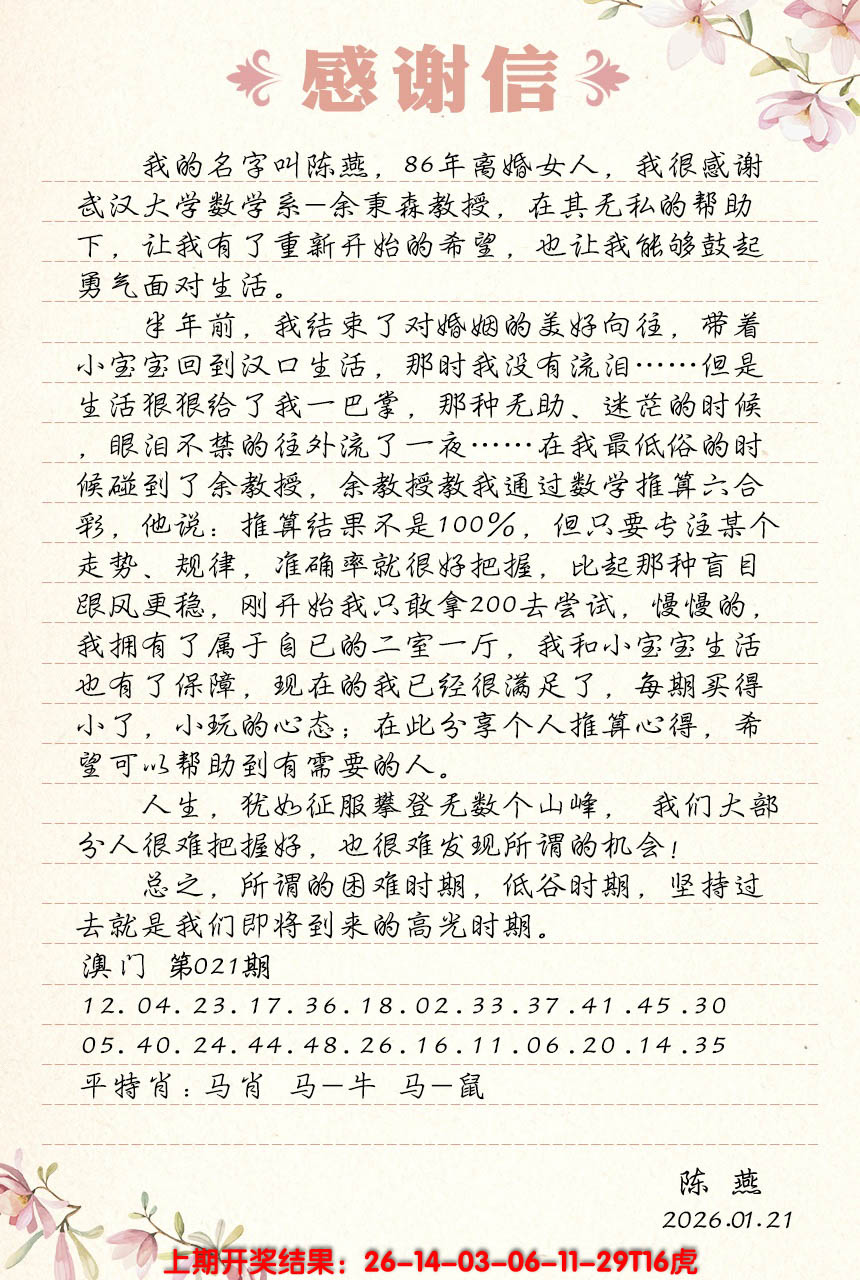 感谢信
我的名字叫陈燕，86年离婚女人，我很感谢
武汉大学数学系-余秉森教授，在其无私的帮助
下，让我有了重新开始的希望，也让我能够鼓起
勇气面对生活。
半年前，我结束了对婚姻的美好向往，带着
小宝宝回到汉口生活，那时我没有流泪……但是
生活狠狠给了我一巴掌，那种无助、迷茫的时候
，眼泪不禁的往外流了一夜……在我最低俗的时
候碰到了余教授，余教授教我通过数学推算六合
彩，他说：推算结果不是100%，但只要专注某个
走势、规律，准确率就很好把握，比起那种盲目
跟风更稳，刚开始我只敢拿200去尝试，慢慢的，
我拥有了属于自已的二室一厅，我和小宝宝生活
也有了保障，现在的我已经很满足了，每期买得
小了，小玩的心态；在此分享个人推算心得，希
望可以帮助到有需要的人。
人生，犹如征服攀登无数个山峰， 我们大部
分人很难把握好，也很难发现所谓的机会！
总之，所谓的困难时期，低谷时期，坚持过
去就是我们即将到来的高光时期。
澳门 第021期
12.04.23.17.36.18.02.33.37.41.45.30
05.40.24.44.48.26.16.11.06.20.14.35
平特肖：马肖 马-牛 马-鼠
陈 燕
2026.01.21
上期开奖结果：26-14-03-06-11-29T16虎